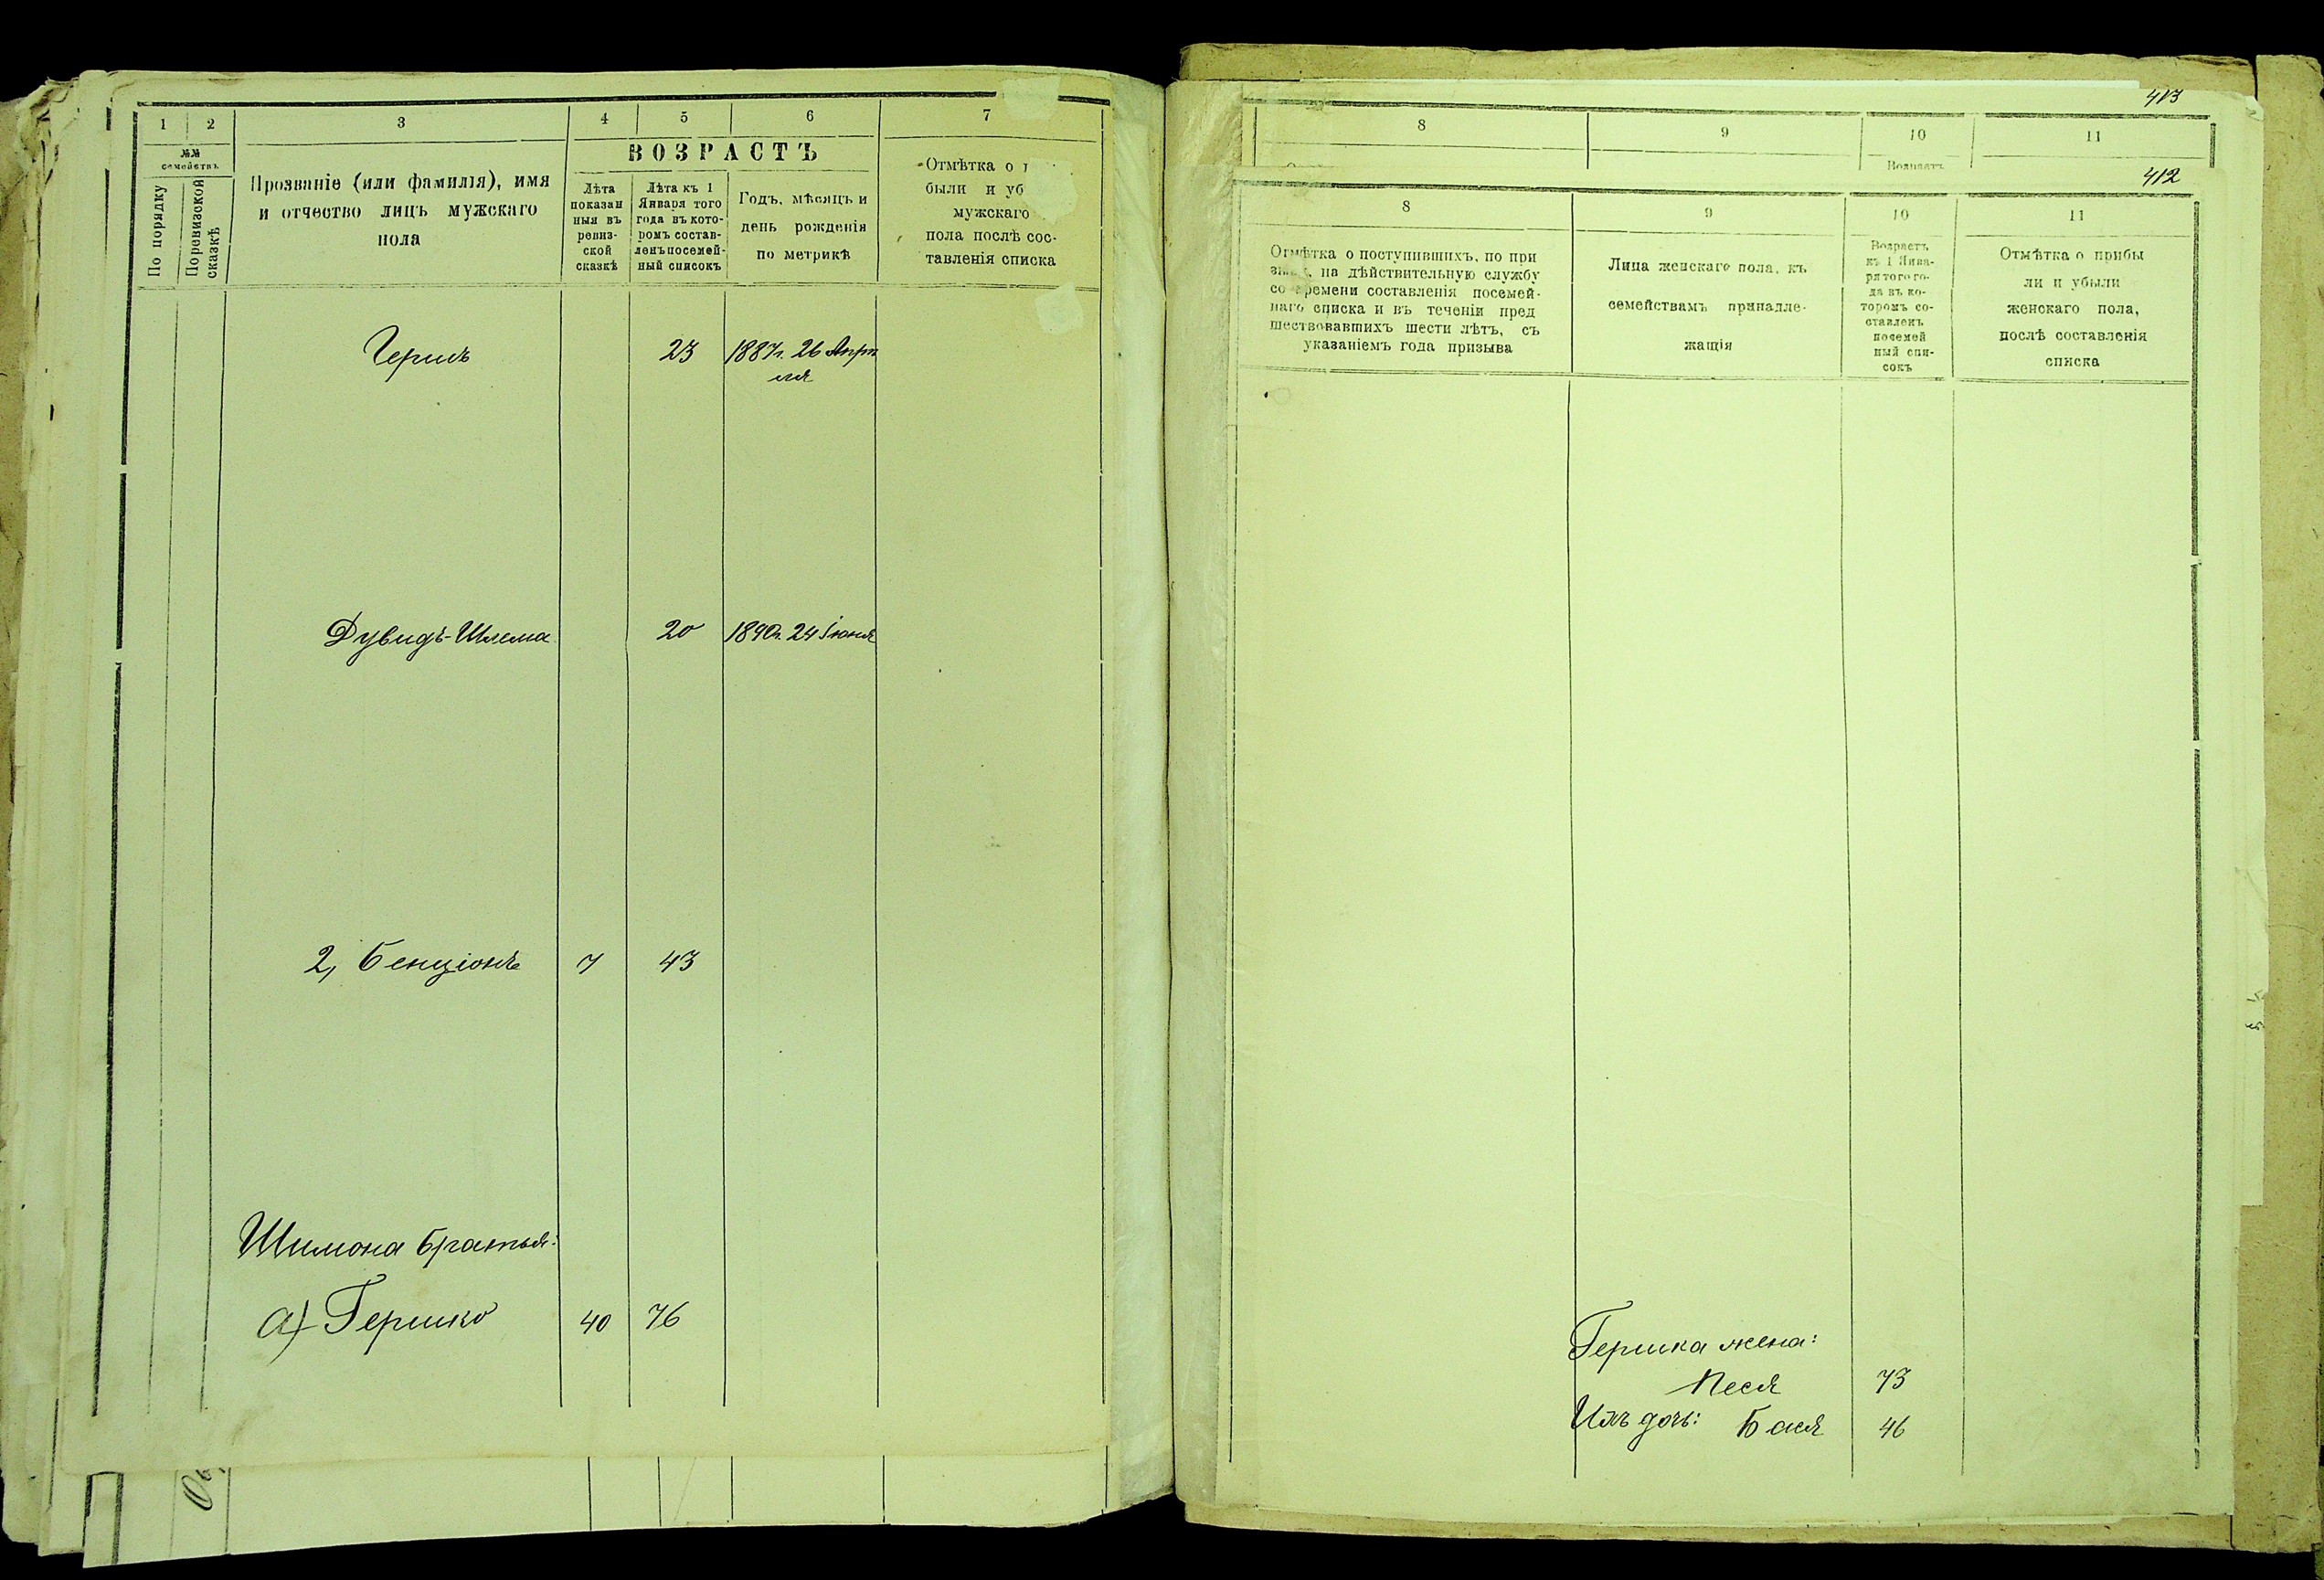 1 2 3 4 5 6 7
№№
семействъ
По порядку
По ревизской
сказкѣ
Прозваніе (или фамилія), имя
и отчество лицъ мужскаго
пола
ВОЗРАСТЪ
Лѣта
показан
ныя въ
ревиз-
ской
сказкѣ
Лѣта къ 1
Января того
года въ кото-
ромъ состав-
ленъ посемей-
ный списокъ
Годъ, мѣсяцъ и
день рожденія
по метрикѣ
Отмѣтка о
были и уб
мужскаго
пола послѣ сос-
тавленія списка
23 1887г. 26 Апрѣ
ля
Дувидъ-Шлема 20 1890г. 24 Іюня
2, Бенціонъ 7 43
Шимона братья:
а) Гершко 40 76
413
8 9 10 11
Возрастъ
412
8 9 10 11
Отмѣтка о поступившихъ, по при
зыву, на дѣйствительную службу
со времени составленія посемей-
наго списка и въ теченіи пред
шествовавшихъ шести лѣтъ, съ
указаніемъ года призыва
Лица женскаго пола, къ
семействамъ принадле-
жащія
Возрастъ
къ 1 Янва-
ря того го-
да въ ко-
торомъ со-
ставленъ
посемей
ный спи-
сокъ
Отмѣтка о прибы
ли и убыли
женскаго пола,
послѣ составленія
списка
Гершка жена:
Песя 73
Ихъ дочь: Бася 46